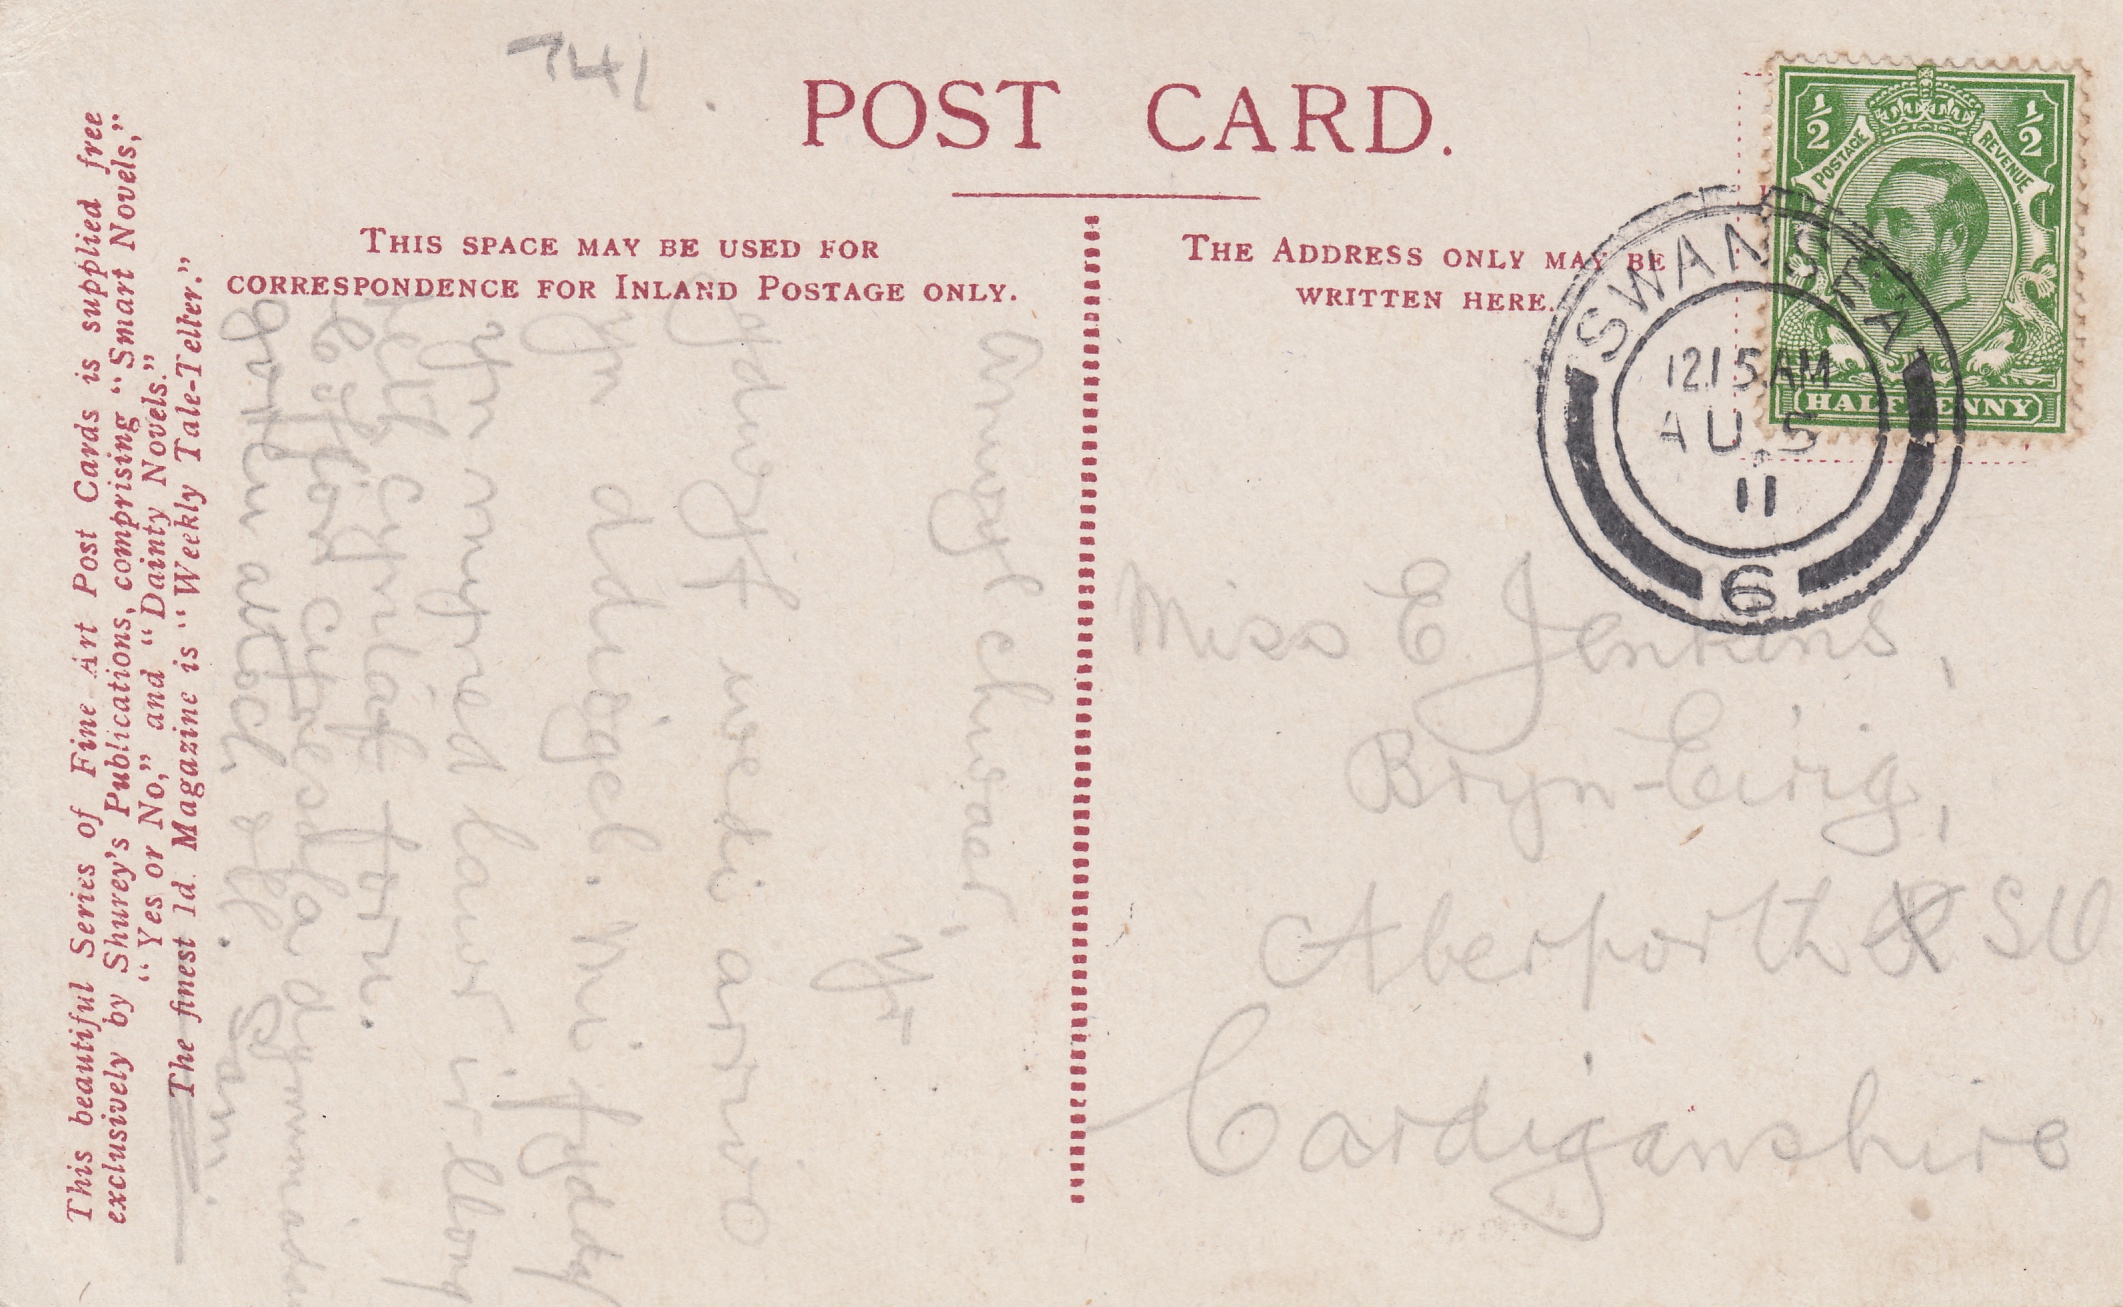 741.
POST CARD.
THIS SPACE MAY BE USED FOR
CORRESPONDENCE FOR INLAND POSTAGE ONLY.
THE ADDRESS ONLY MAY BE
WRITTEN HERE.
½ ½
POSTAGE REVENUE
HALFPENNY
SWANSEA
12.15 AM
AU 5
11
6
This beautiful Series of Fine Art Post Cards is supplied free
exclusively by Shurey's Publications, comprising "Smart Novels,"
"Yes or No," and "Dainty Novels."
The finest 1d. Magazine is "Weekly Tale-Teller."
Annwyl chwaer,
Yr
ydwyf wedi arrivo
yn ddiogel. Mi fyddaf
yn myned lawr i'r llong
cyntaf
gofion
atoch oll. Sam.
Miss E Jenkins,
Bryn-Eirig,
Aberporth SO
Cardiganshire